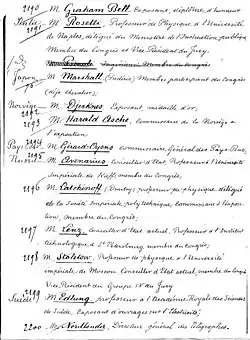 2190 M. Graham Bell, Exposant, diplôme d'honneur
Italie 2191 M. Rosetti, Professeur de Physique à l'Université
de Naples, délégué du Ministre de l'Instruction publique
Membre du Congrès et Vice Président du Jury
Membre du Congrès
Japon M. Marshall, Membre participant du congrès
(déjà chevalier)
Norvège 2192 M. Djerknes Exposant, médaille d'or,
2193 M. Harald Asche, Commissaire de la Norvège à
l'exposition
Pays Bas 2194 M. Gérard-Cyens commissaire Général des Pays-Bas,
Russie 2195 M. Avenarius, Conseiller d'Etat, Professeur à l'Université
Impériale de Kieff, membre du congrès,
2196 M. Latchinoff (Dimitry) professeur de physique, délégué
de la Société Impériale polytechnique, commissaire à l'Exposi-
tion, Membre du Congrès,
2197 M. Lenz, Conseiller d'Etat actuel, Professeur à l'Institut
technologique, à St Pétersbourg, membre du congrès,
2198 M. Stoletow, Professeur de physique à l'Université
impériale, de Moscou, Conseiller d'Etat actuel, membre du congrès
Vice Président du Groupe IV du Jury
Suède 2199 M. Edlung, professeur à l'Académie Royale des Sciences
de Suède, Exposant d'ouvrages sur l'Electricité,
2200 M. Nordlander, Directeur général des télégraphes.